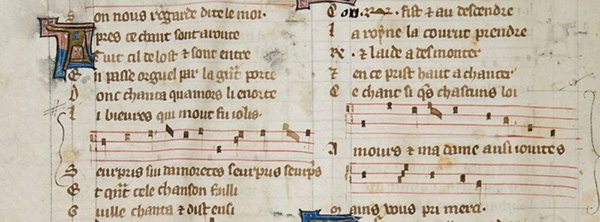 Son nous regarde dite le moi.
Apres ce chant sont aroute
Tuit cil de lost & sont entre
En passe orguel par la gnt porte
Dont chanta quamors li enorte
Li bieures qui mout fu iolis.
Seurpris sui damoretes seurpris seurpris
Et qnt cele chanson failli
Guille chanta & dist ensi
fist & au descendre
La royne la courut prendre
& laide a desmonter
Et en ce prist haut a chanter
Ce chant si que chascuns loi
Amours & ma dame ausi iointes
mains vous pri merci.